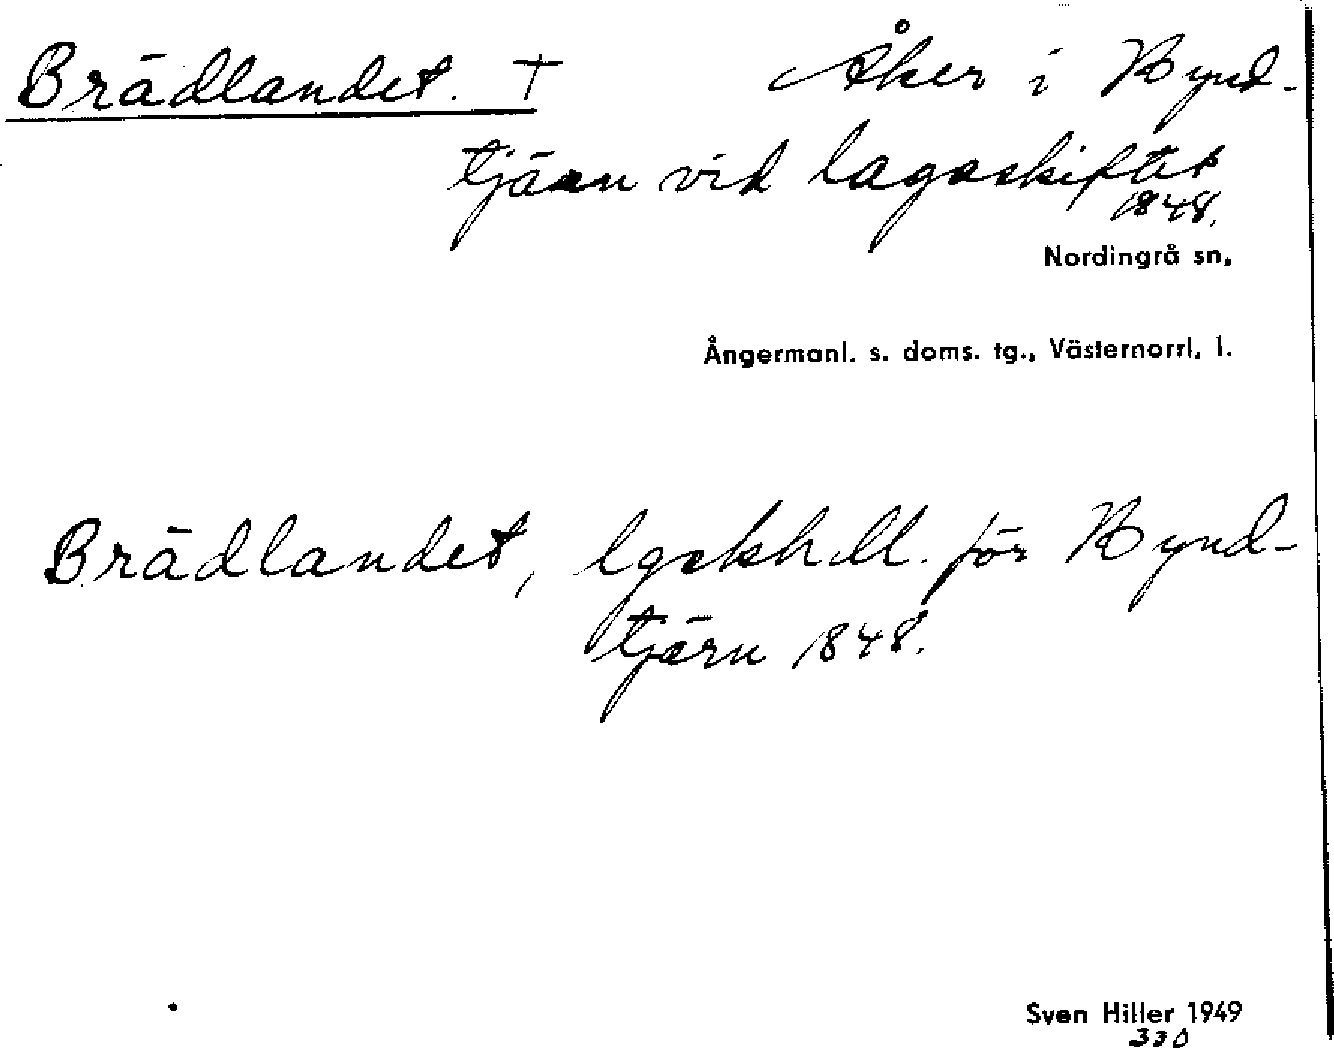 Brädlandet. † Åker i Bynd-
tjärn vid lagaskiftet
1848.
Nordingrå sn,
Ångermanl. s. doms. tg., Västernorrl. l.
Brädlandet, lgskhdl. för Bynd-
tjärn 1848.
Sven Hiller 1949
330